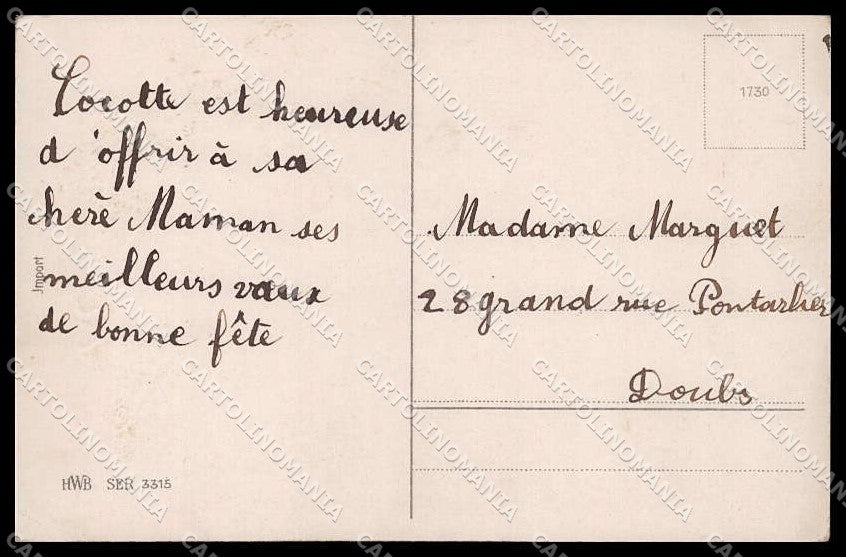 Cocotte est heureuse
d'offrir à sa
chere Maman ses
meilleurs vœux
de bonne fête
Import
HWB SER 3315
1730
Madame Marguet
28 grand rue Pontarlier
Doubs
CARTOLINOMANIA